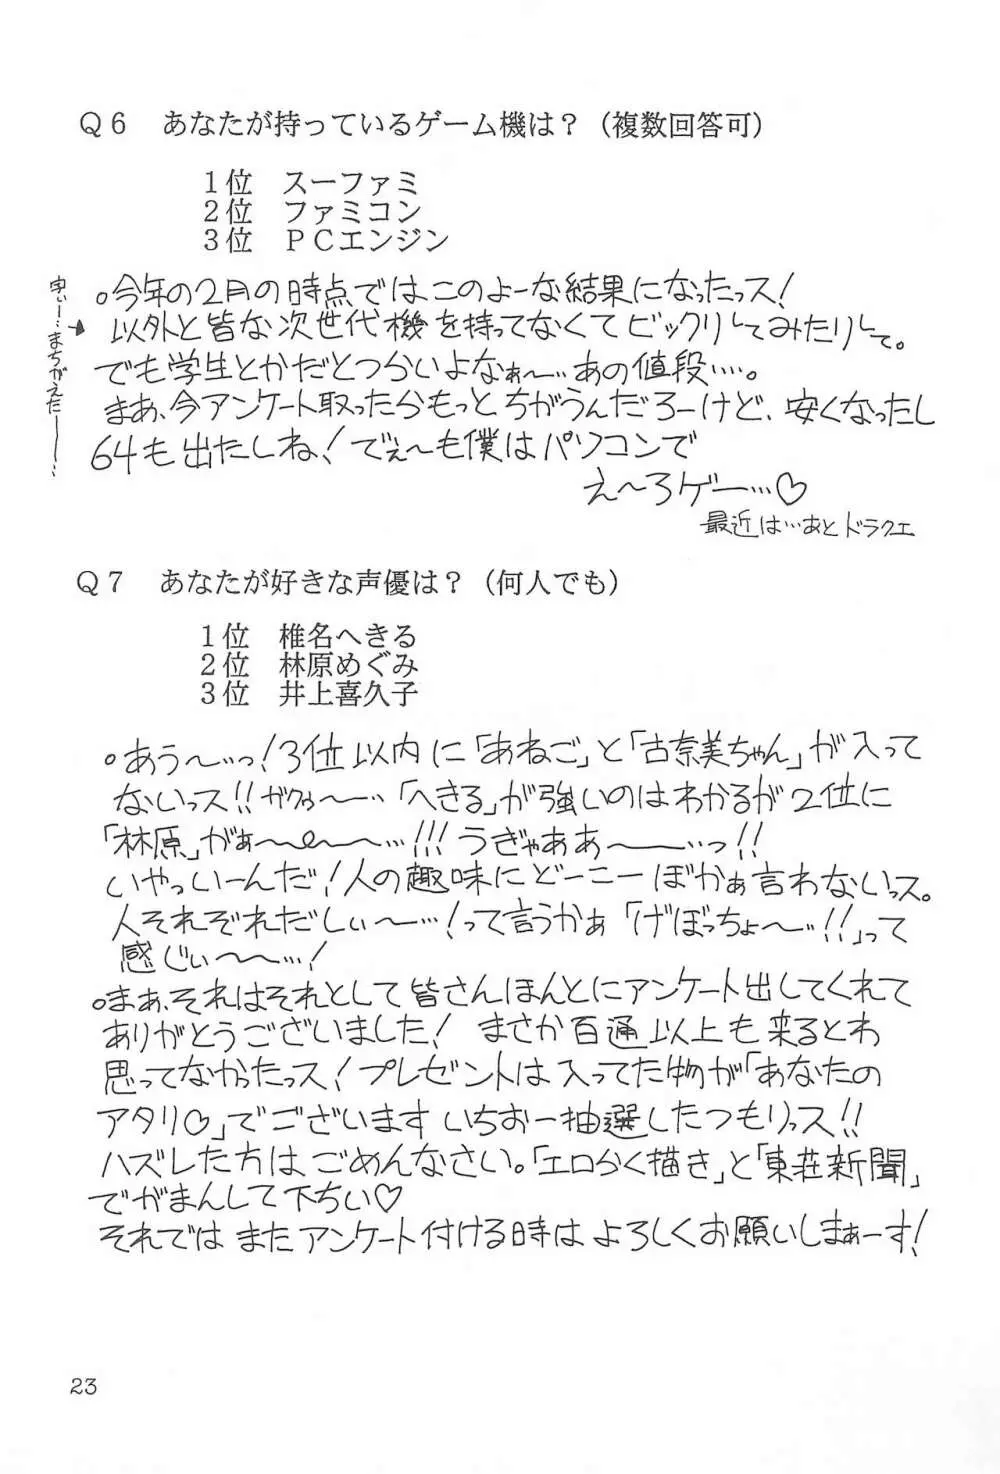 Q6　あなたが持っているゲーム機は？（複数回答可）
1位　スーファミ
2位　ファミコン
3位　PCエンジン
。今年の2月の時点ではこのよーな結果になったっス！
以外と皆な次世代機を持ってなくてビックリしてみたりして。
字ぃー…まちがえたー…
でも学生とかだとつらいよなぁ〜…あの値段…。
まあ、今アンケート取ったらもっとちがうんだろーけど、安くなったし
64も出たしね！でぇ〜も僕はパソコンで
え〜ろゲー…♡
最近は…あとドラクエ
Q7　あなたが好きな声優は？（何人でも）
1位　椎名へきる
2位　林原めぐみ
3位　井上喜久子
。あう〜…っ！3位以内に「あねご」と「古奈美ちゃん」が入って
ないっス!!ガクゥ〜…「へきる」が強いのはわかるが2位に
「林原」がぁ〜〜〜…!!!うぎゃああ〜…っ!!
いやっいーんだ！人の趣味にどーこーぼかぁ言わないっス。
人それぞれだしぃ〜…！って言うかぁ「げぼっちょ〜…!!」って
感じぃ〜〜…！
。まぁ、それはそれとして皆さんほんとにアンケート出してくれて
ありがとうございました！まさか百通以上も来るとわ
思ってなかったっス！プレゼントは入ってた物が「あなたの
アタリ♡」でございます いちおー抽選したつもりっス!!
ハズレた方はごめんなさい。「エロらく描き」と「東荘新聞」
でがまんして下ちい♡
それではまたアンケート付ける時はよろしくお願いしまぁーす！
23